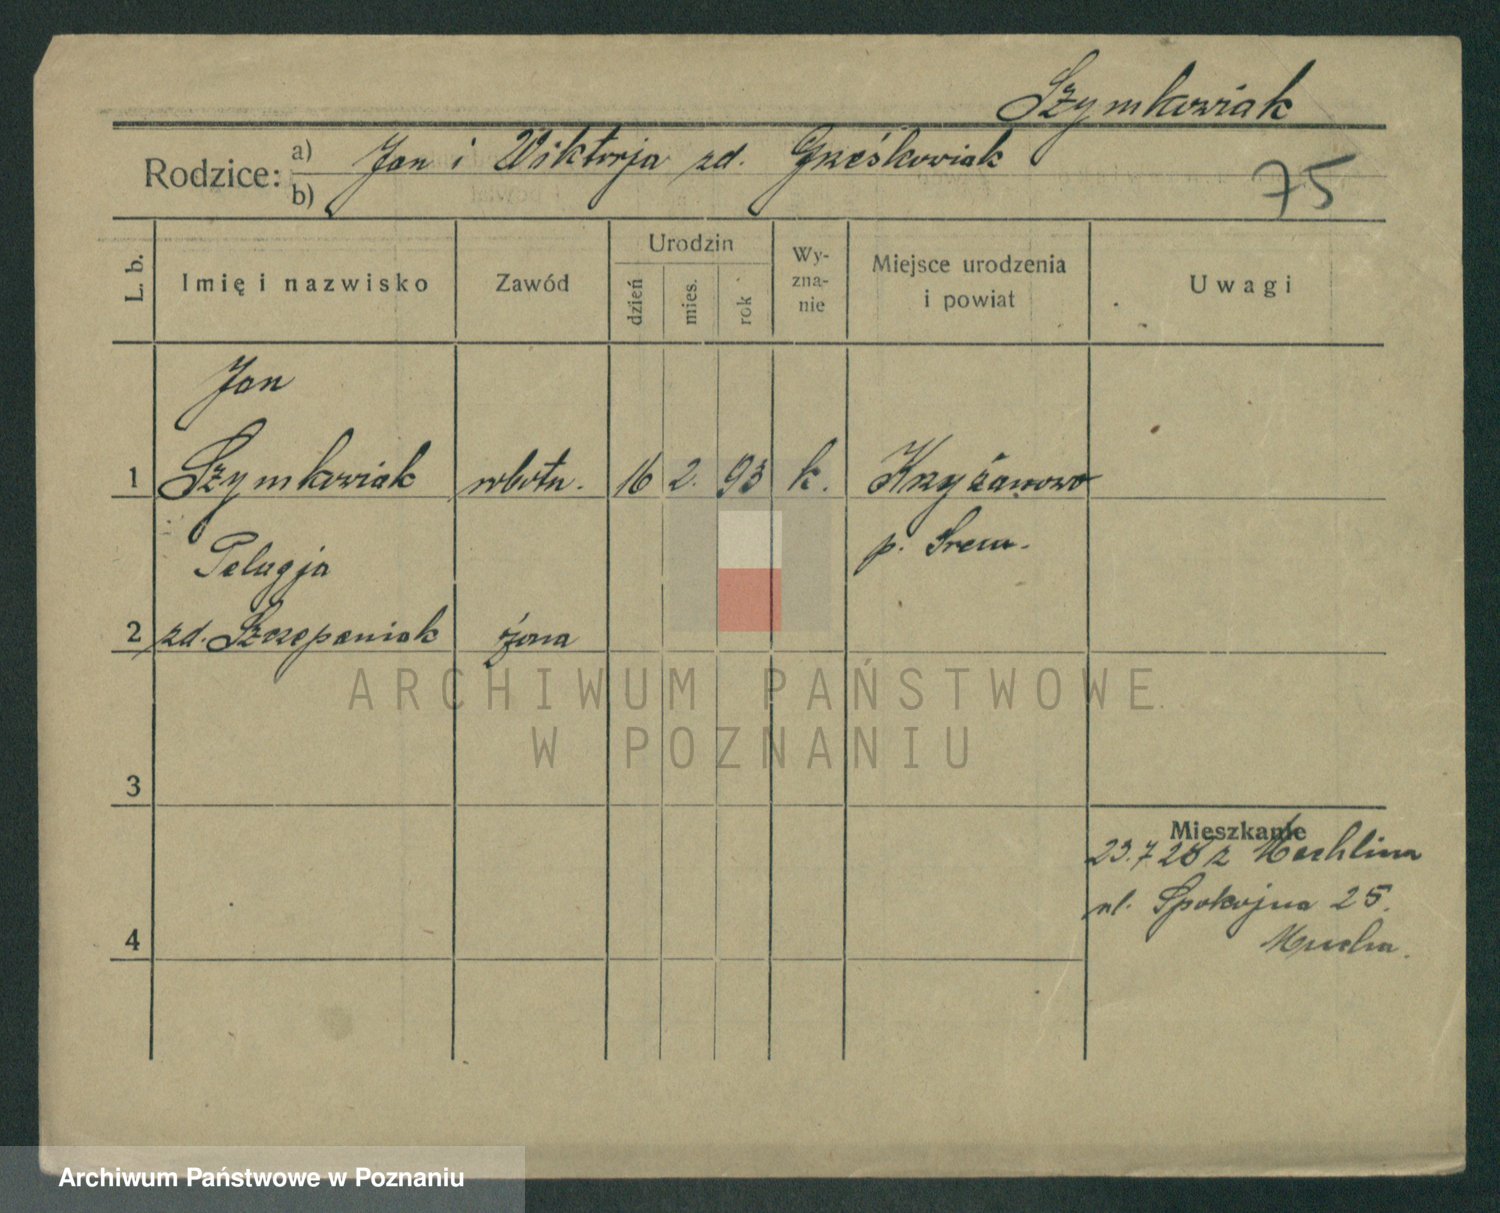 Szymkowiak
Rodzice: a) Jan i Wiktorja zd. Grześkowiak
b)
75
L. b.
Imię i nazwisko
Zawód
Urodzin
dzień
mies.
rok
Wy-
zna-
nie
Miejsce urodzenia
i powiat
Uwagi
Jan
1 Szymkowiak robotn. 16 2. 93 k. Krzyżanowo
p. Śrem.
Pelagja
2 zd. Szczepaniak żona
ARCHIWUM PAŃSTWOWE
W POZNANIU
3
Mieszkanie
23.7 28 z Mechlina
ul. Spokojna 25.
4
Archiwum Państwowe w Poznaniu